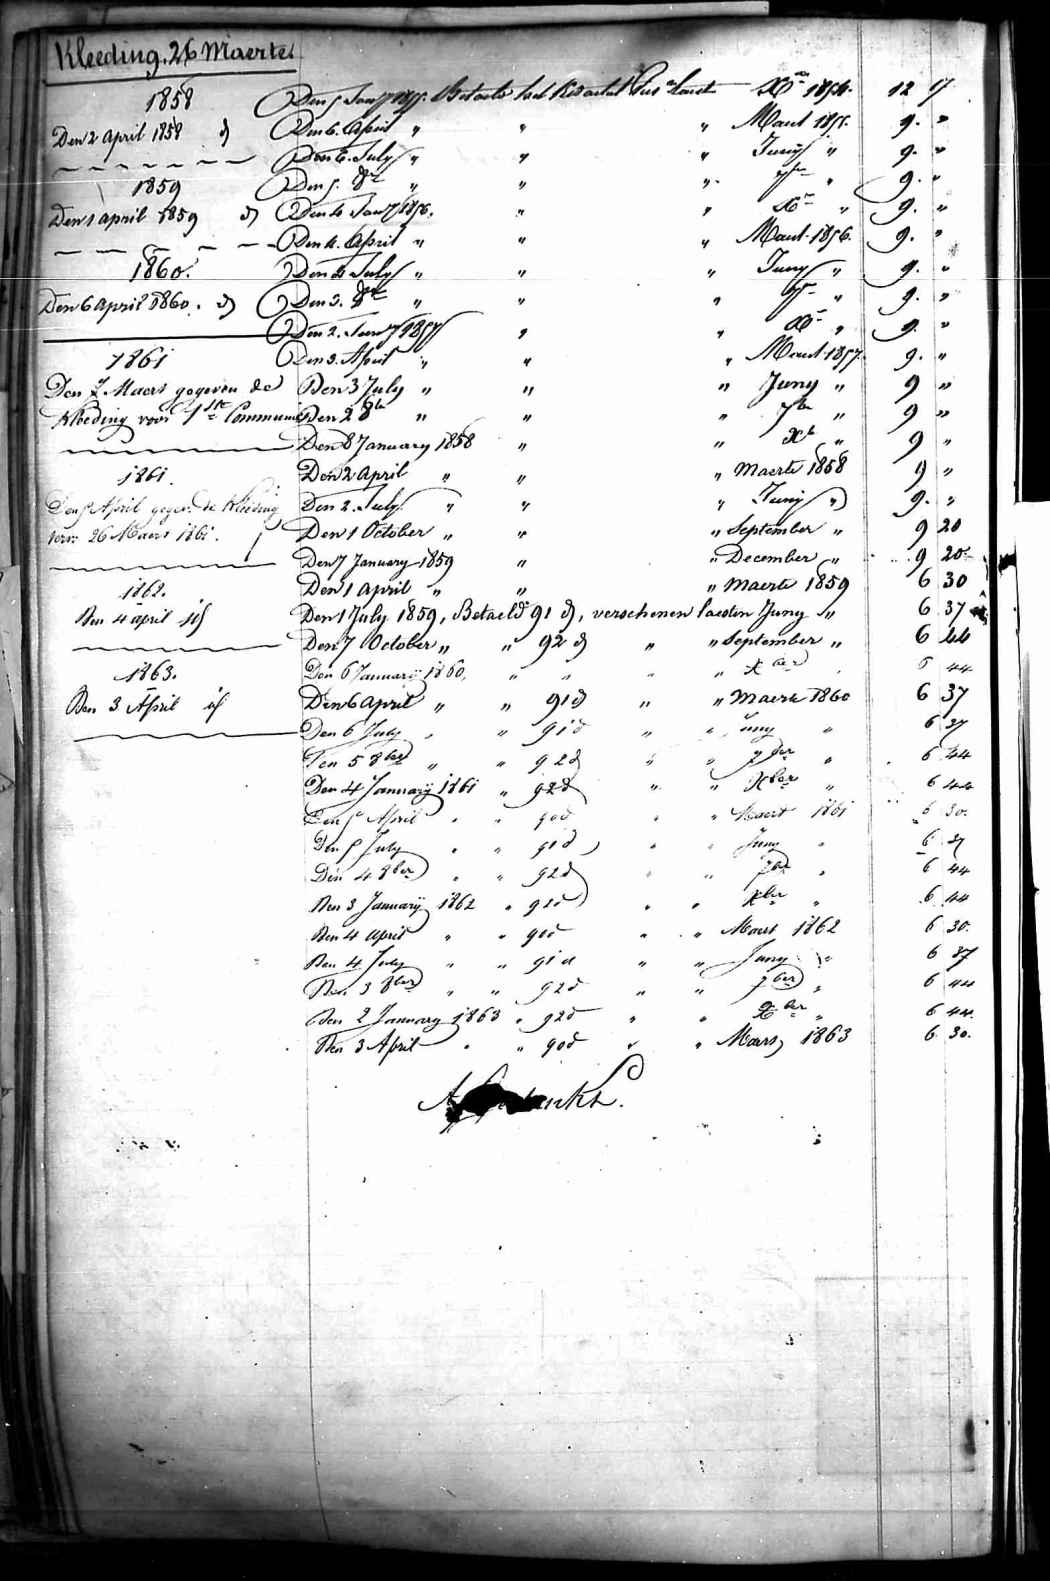 Kleeding. 26 Maerte
1858
Den 2 April 1858 d
1859
Den 1 April 1859 d
1860.
Den 6 April 1860. d
1861
Den 7 Maers gegeven de
Kleeding voor 1ste Communie
1861.
Den 5 April gegev. de Kleeding
verv. 26 Maers 1861.
1862.
Den 4 april id
1863.
Den 3 April id
Den 5 Jany 1855. Betaeld het Xber 1854. 12 17
Den 6. April " " " Maert 1855. 9. "
Den 6. July " " " Juny " 9. "
Den 5. 8er " " " 7er " 9. "
Den 4 Jany 1856. " " Xer " 9. "
Den 4. April " " " Maert 1856. 9. "
Den 4 July " " " Juny " 9. "
Den 3. 8er " " " 7er " 9. "
Den 2. Jany 1857 " " Xer " 9. "
Den 3. April " " " Maert 1857. 9. "
Den 3 July " " " Juny " 9 "
Den 2 8br " " " 7br " 9 "
Den 8 January 1858 " " Xb " 9 "
Den 2 April " " " Maerte 1858 9 "
Den 2. July " " " Juny " 9. "
Den 1 October " " " September " 9 20
Den 7 January 1859 " " December " 9 20
Den 1 April " " " Maerte 1859 6 30
Den 1 July 1859, Betaeld 91 d, verschenen laesten Juny " 6 37
Den 7 October " " 92 d " " September " 6 44
Den 6 January 1860, " " " " Xber " 6 44
Den 6 April " " 91 d " " Maerte 1860 6 37
Den 6 July " " 91 d " " Juny " 6 37
Den 5 8ber " " 92 d " " 7ber " 6 44
Den 4 January 1861 " 92 d " " Xber " 6 44
Den 5 April " " 90 d " " Maert 1861 6 30.
Den 5 July " " 91 d " " Juny " 6 37
Den 4 8ber " " 92 d " " 7br " 6 44
Den 3 January 1862 " 92 d " " Xber " 6 44
Den 4 april " " 90 d " " Maert 1862 6 30.
Den 4 July " " 91 d " " Juny " 6 37
Den 3 8ber " " 92 d " " 7ber " 6 44
Den 2 January 1863 " 92 d " " Xber " 6 44.
Den 3 April " " 90 d " " Mars 1863 6 30.